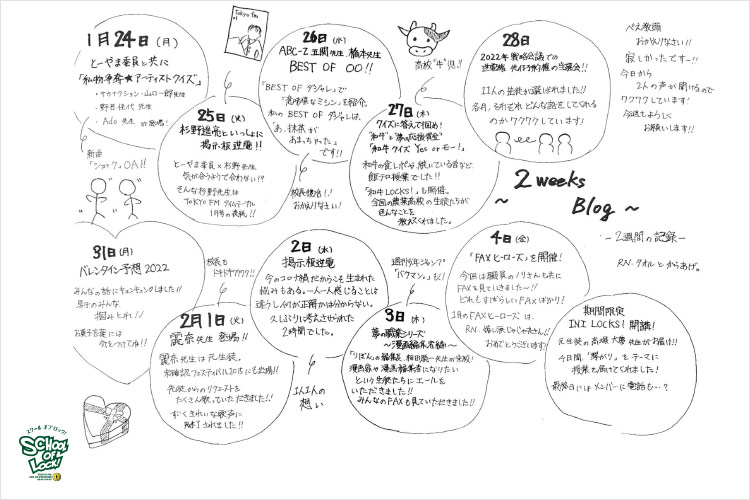 1月24日(月)
とーやま委員と共に
「私物争奪★アーティストクイズ」
・サカナクション・山口一郎先生
・野田洋次郎先生
・Ado先生が登場!
Tokyo fm
26日(水)
ABC-Z 五関先生、橋本先生
BEST OF 〇〇!!
「BEST OF ダジャレ」で
を紹介。
私の BEST OF ダジャレは、
「あ、抹茶が
あまっちゃった」
です!!
校長復活!!
おかえりなさい!
高校"牛"児!!
28日
2022年戦略会議での
進路権の当選会!!
11人の生徒が選ばれました!!
各月、それぞれどんな話をしてくれる
のかワクワクしています!
ぺえ教頭
おかえりなさい!!
寂しかったです…!!
今日から
2人の声が聞けるので
ワクワクしています!
今週もよろしく
お願いします!!
25日(火)
杉野遥亮といっしょに
掲示板逆電!!
とーやま委員×杉野先生
気が合うようで合わない!?
そんな杉野先生は
TOKYO FM タイムテーブル
1月号の表紙!!
新曲
「ショック」OA!!
27日(木)
クイズに答えて固め!
"和牛"と夢の応援賞金
「和牛クイズ Yes or モー!」
和牛の食レポや、焼いている音など、
飯テロ授業でした!!
「和牛LOCKS!」も開催。
全国の農業高校の生徒たちが
色んなことを
教えてくれました。
~ 2 weeks
Blog ~
-2週間の記録-
RN. タオルとからあげ。
31日(月)
バレンタイン予想2022
みんなの話にキュンキュンしました!!
男子のみんな
掴みとれ!!
お菓子言葉には
気をつけてね!!
校長も
ドキドキ???!!
2月1日(火)
麗奈先生 登場!!
麗奈先生は元生徒。
未確認フェスティバル2015にも出場!!
先生からのリクエストを
たくさん歌っていただきました!!
すごくきれいな歌声に
魅了されました!!
2日(水)
掲示板逆電
今のコロナ禍だからこそ生まれた
悩みもある。一人一人感じることは
違うし、何が正解かは分からない。
久しぶりに考えさせられた
2時間でした。
1人1人の
想い
週刊少年ジャンプ
「バクマン。」も!!
3日(木)
夢の職業シリーズ
~漫画編集者編!~
「りぼん」の編集長、相田聡一先生が来校!
漫画家や漫画編集者になりたい
という生徒たちにエールを
いただきました!!
みんなのFAXも見ていただきました!!
4日(金)
「FAXヒーローズ」を開催!
今回は職員のノリさんも共に
FAXを見ていきました~!!
どれもすばらしいFAXばかり!
1月のFAXヒーローズは、
RN. 嬉し涙じゃじゃさん!!
おめでとうございます!
期間限定
INI LOCKS! 開講!
元生徒の高塚大夢先生がお届け!!
4日間、「繋がり」をテーマに
授業を届けてくれました!
最終日にはメンバーに電話も…?
スクール オブ ロック!
SCHOOL
OF
LOCK!